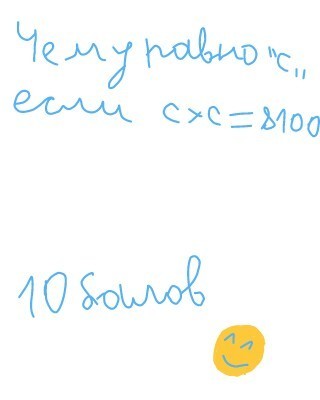 Чему равно "с"
если с×с=8100
10 балов